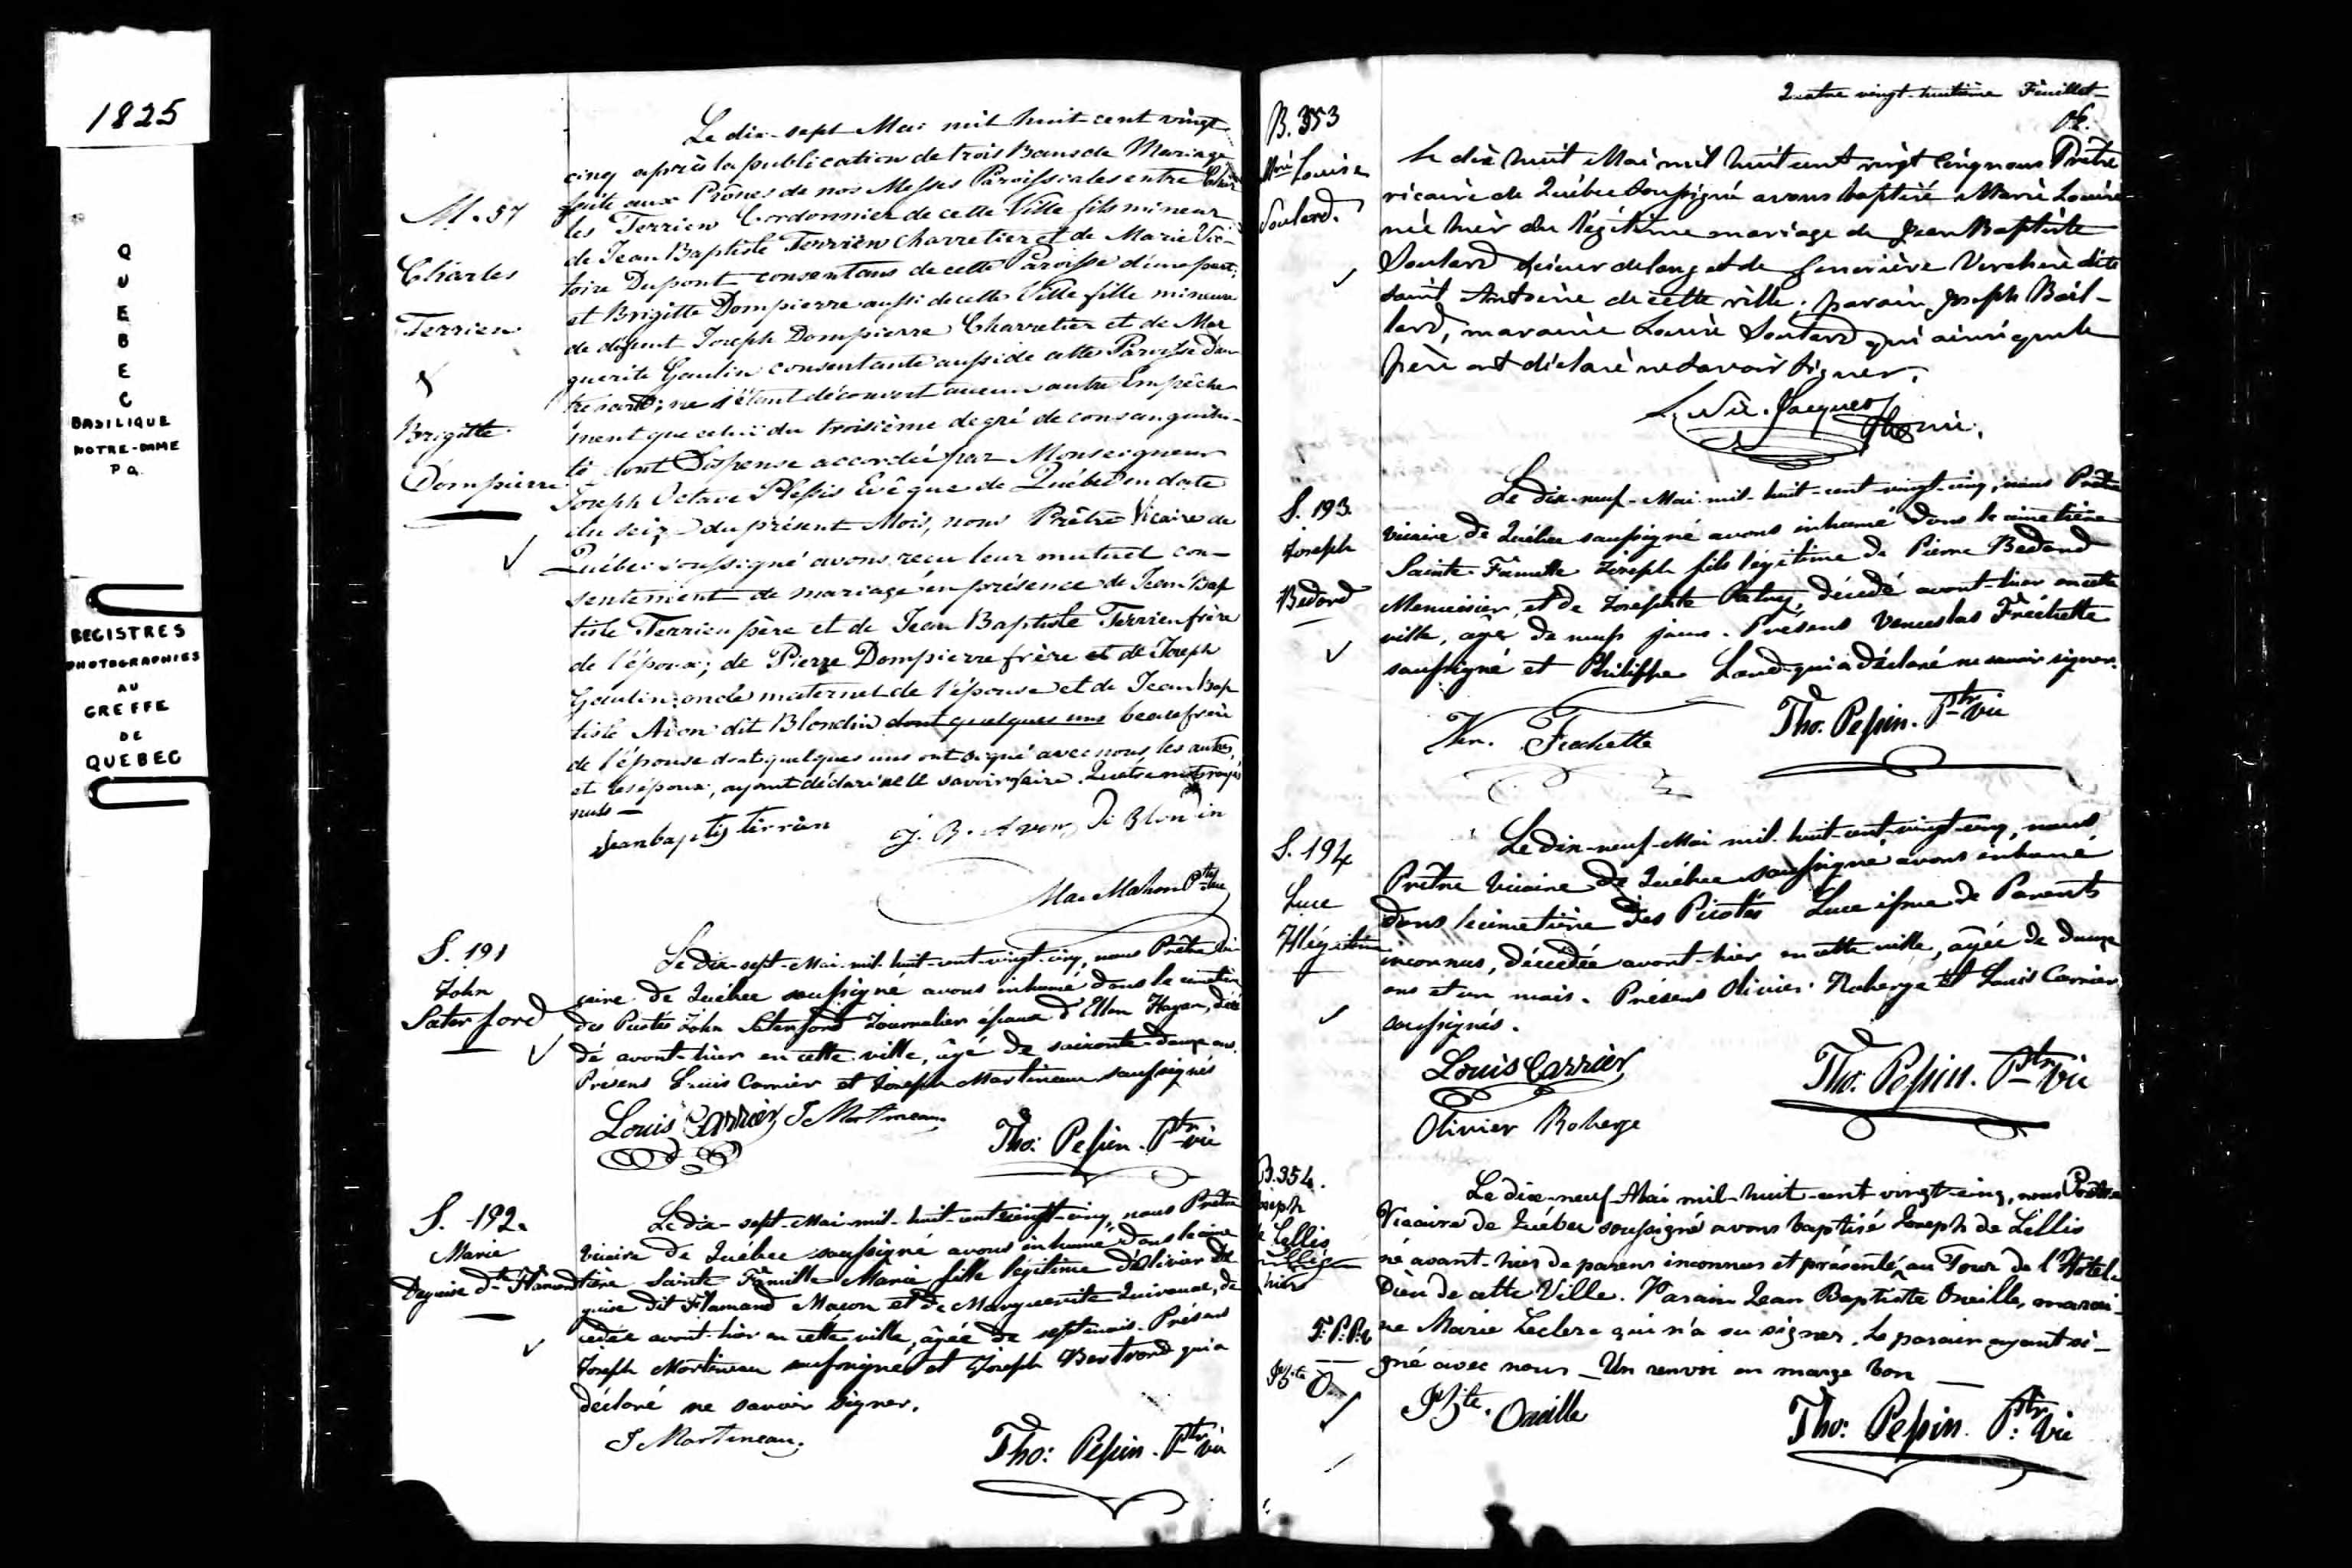 1825
QUEBEC
BASILIQUE
NOTRE-DAME
P Q.
REGISTRES
PHOTOGRAPHIES
AU
GREFFE
DE
QUEBEC
M. 57
Charles
Terrien
&
Brigitte
Dompierre
Le dix-sept Mai mil huit-cent vingt
cinq après la publication de trois Bans de Mariage
faite aux Prônes de nos Messes Paroissiales entre Char
les Terrien Cordonnier de cette Ville fils mineur
de Jean Baptiste Terrien Charretier et de Marie Vic-
toire Dupont consentans de cette Paroisse d'une part;
et Brigitte Dompierre aussi de cette Ville fille mineure
de défunt Joseph Dompierre Charretier et de Mar
guerite Gaulin consentante aussi de cette Paroisse d'au
tre part; ne s'étant découvert aucun autre Empêche
ment que celui du troisième degré de consanguini-
té dont Dispense accordée par Monseigneur
Joseph Octave Plessis Evêque de Québec en date
du seize du présent Mois, nous Prêtre Vicaire de
Québec soussigné avons reçu leur mutuel con-
sentement de mariage en présence de Jean Bap
tiste Terrien père et de Jean Baptiste Terrien frère
de l'époux; de Pierre Dompierre frère et de Joseph
Gaulin oncle maternel de l'épouse et de Jean Bap
tiste dit Blondin dont quelques uns beaufrère
de l'épouse dont quelques uns ont signé avec nous, les autres,
et les époux, ayant déclaré ne le savoir faire. Quatre mots rayés
nuls —
Jean baptis terrien J. B. Avon di Blondin
Mac Mahon Ptre Vic
S. 191
John
Saterford
Le dix-sept-Mai-mil-huit-cent-vingt-cinq, nous Prêtre Vi
caire de Québec soussigné avons inhumé dans le cimetière
des Picotés John Saterford Journalier époux d'Ellen Hagan, décé
dé avant-hier en cette ville, âgé de soixante-douze ans.
Présens Louis Carrier et Joseph Martineau soussignés
Louis Carrier J Martineau
Tho: Pepin. Ptre vic
S. 192.
Marie
Deguise dt Flamand
Le dix-sept-Mai-mil-huit-cent-vingt-cinq, nous Prêtre
Vicaire de Québec soussigné avons inhumé dans le cime
tière Sainte Famille Marie fille légitime d'Olivier De
guise dit Flamand Maçon et de Marguerite, dé
cédée avant-hier en cette ville, âgée de sept mois. Présens
Joseph Martineau soussigné et Joseph Bertrand qui a
déclaré ne savoir signer.
J Martineau.
Tho: Pepin. Ptre Vic
Quatre vingt-huitième Feuillet—
B. 353
Mrie Louise
Soulard.
Le dix huit Mai mil huit cent vingt cinq nous Prêtre
vicaire de Québec soussigné avons baptisé Marie Louise
née hier du légitime mariage de Jean Baptiste
Soulard scieur de long et de Geneviève Verchere dite
saint Antoine de cette ville; parain Joseph Bail-
lard, maraine Louise Soulard qui ainsi que le
père ont déclaré ne savoir signer.
S. 193.
Joseph
Bedard
Le dix-neuf-Mai-mil-huit-cent-vingt-cinq, nous Prêtre
vicaire de Québec soussigné avons inhumé dans le cimetière
Sainte-Famille Joseph fils légitime de Pierre Bedard
Menuisier, et de Josephte, décédé avant-hier en cette
ville, âgé de neuf jours. Présens Venceslas Fréchette
soussigné et Philippe qui a déclaré ne savoir signer.
Ven. Frechette
Tho. Pepin. Ptre Vic
S. 194
Luce
Illégitime
Le dix-neuf-Mai mil-huit-cent-vingt-cinq, nous
Prêtre Vicaire de Québec soussigné avons inhumé
dans le cimetière des Picotés Luce issue de Parents
inconnus, décédée avant-hier en cette ville, âgée de douze
ans et un mois. Présens Olivier Roberge et Louis Carrier
soussignés.
Louis Carrier
Olivier Roberge
Tho: Pepin. Ptre Vic
B. 354.
Joseph
de Lellis
Le dix-neuf-Mai mil-huit-cent-vingt-cinq, nous Prêtre
Vicaire de Québec soussigné avons baptisé Joseph de Lellis
né avant-hier de parens inconnus et présenté au Tour de l'Hotel-
Dieu de cette Ville. Parain Jean Baptiste Oneille, marai-
ne Marie Leclerc qui n'a su signer. Le parain ayant si-
gné avec nous — Un renvoi en marge bon —
Tho: Pepin. Ptre: Vic